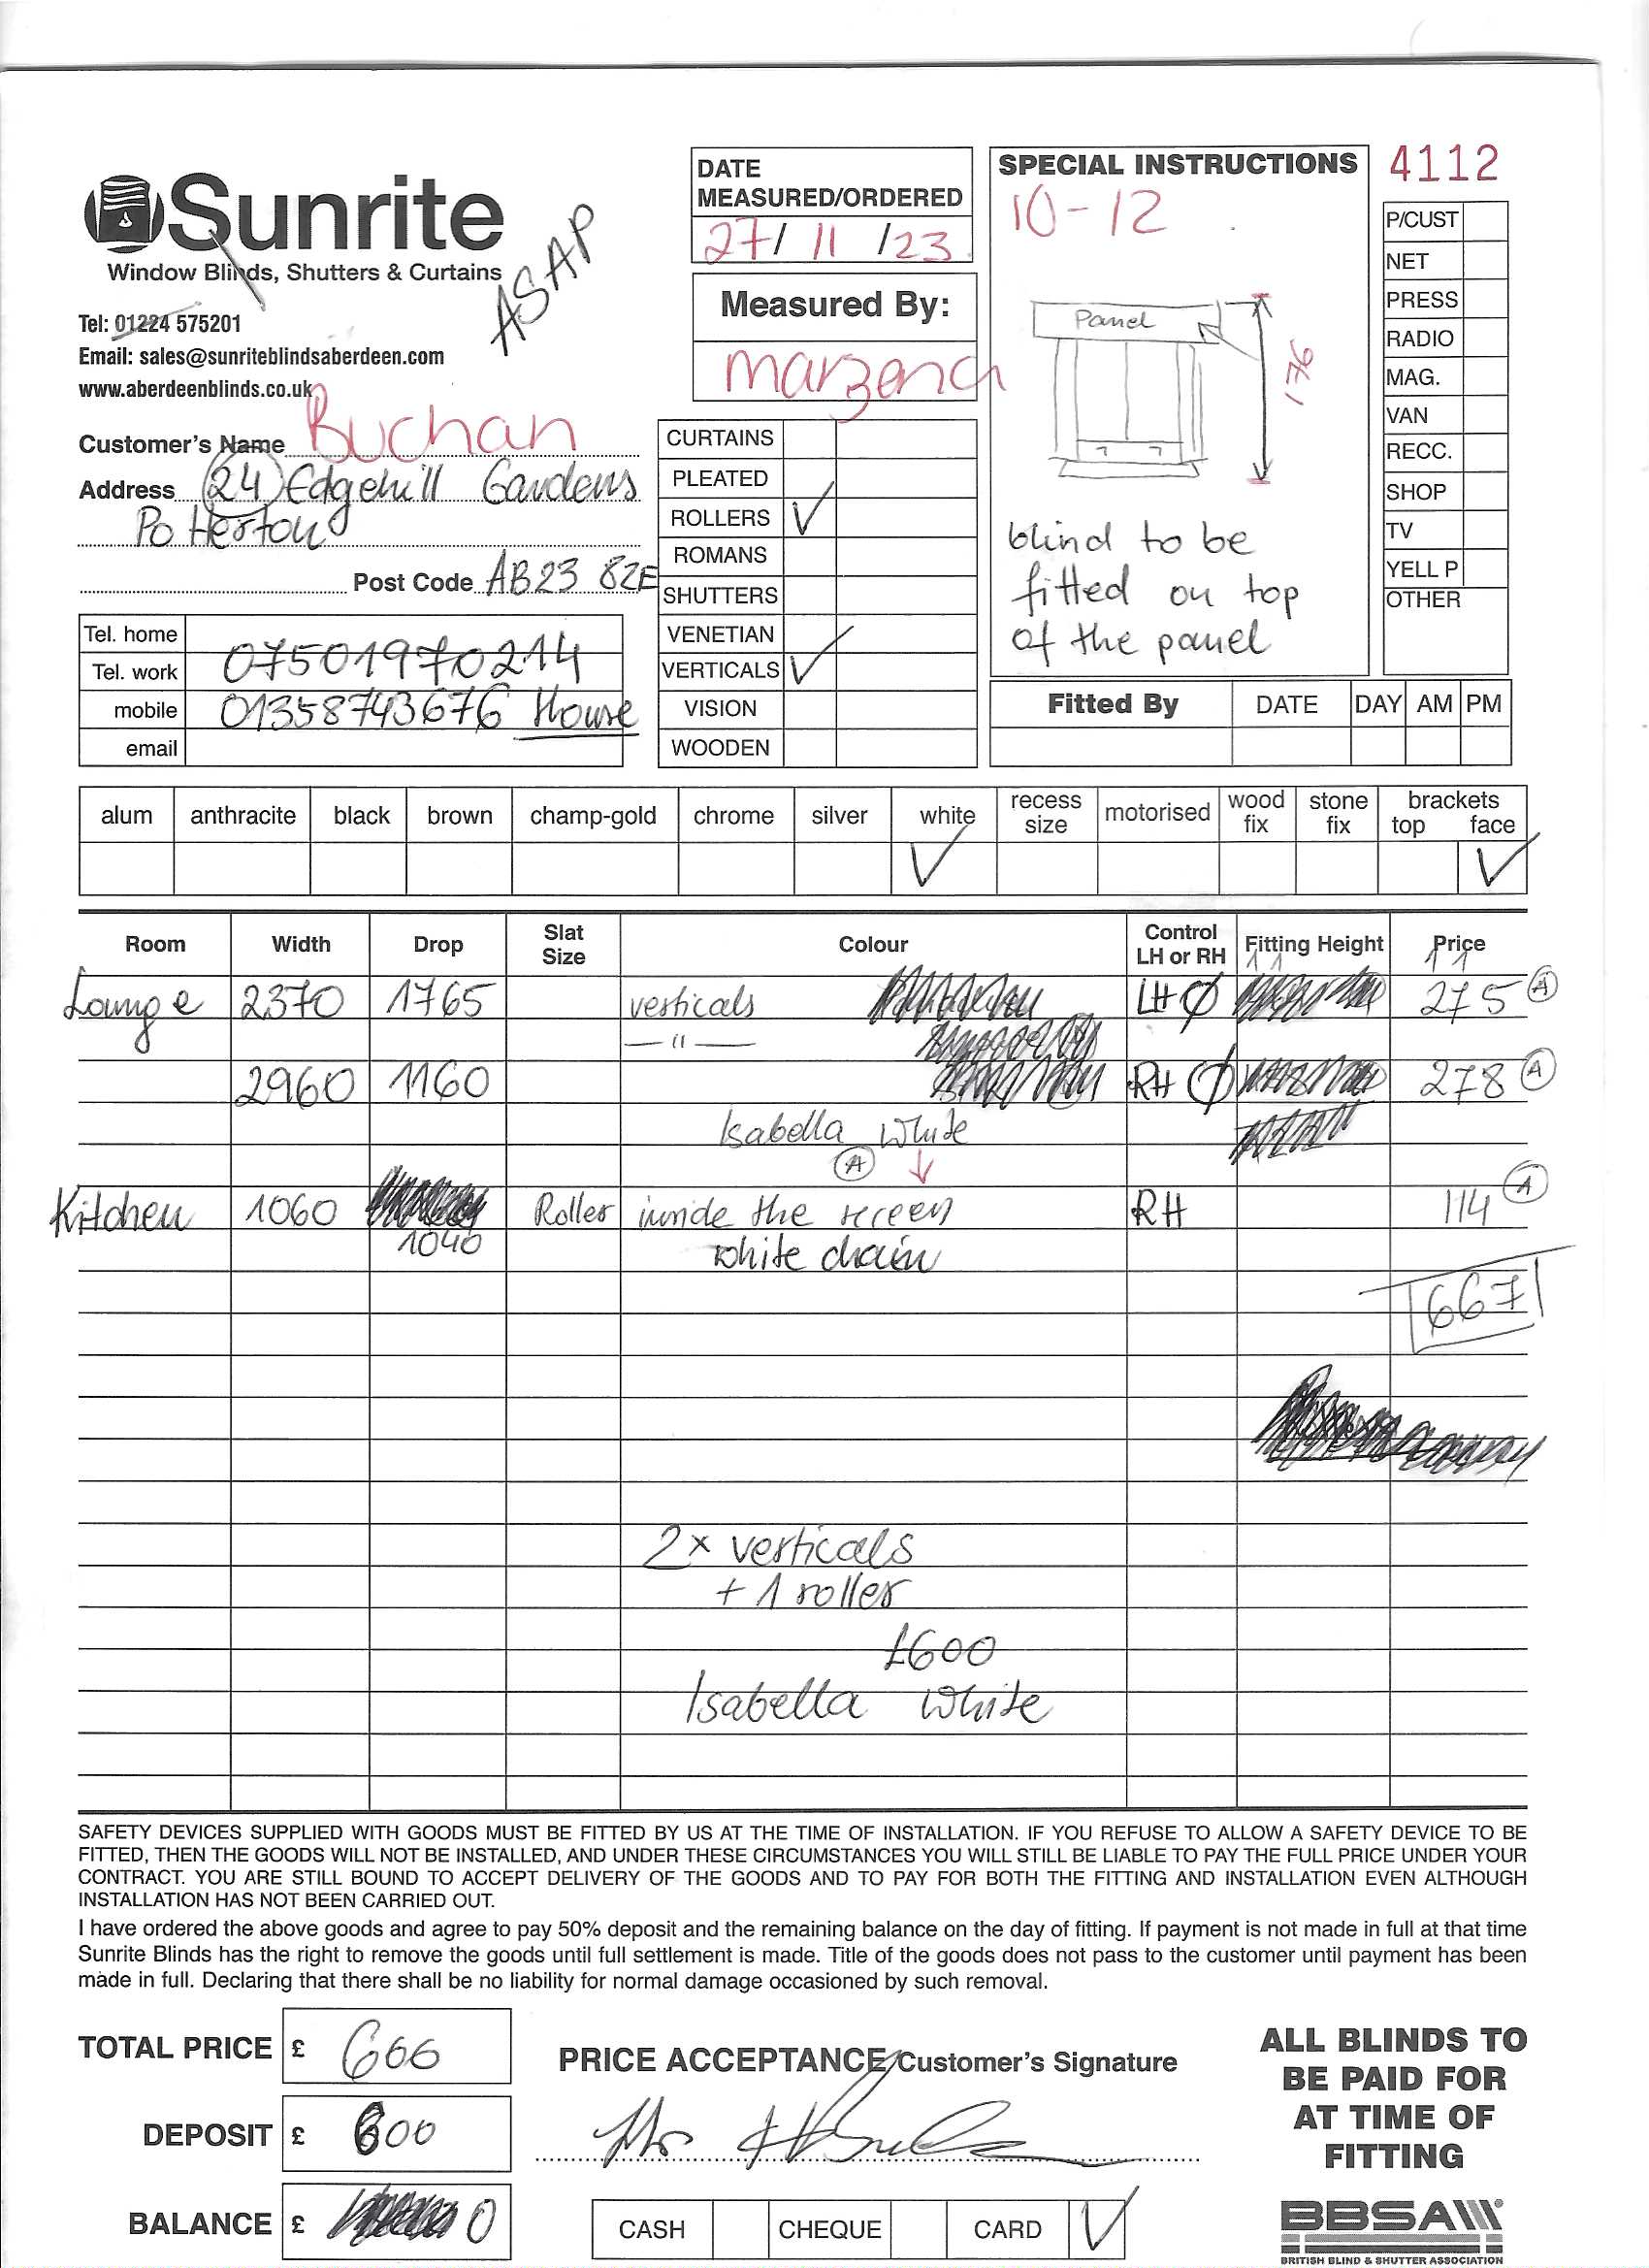 Sunrite
Window Blinds, Shutters & Curtains
ASAP
Tel: 01224 575201
Email: sales@sunriteblindsaberdeen.com
www.aberdeenblinds.co.uk
Customer's Name Buchan
Address 24 Edgehill Gardens
Potterton
Post Code AB23 8ZE
Tel. home
Tel. work 07501970214
mobile 01358743676 House
email
DATE
MEASURED/ORDERED
27/ 11 /23
Measured By:
marzena
CURTAINS
PLEATED
ROLLERS ✓
ROMANS
SHUTTERS
VENETIAN
VERTICALS ✓
VISION
WOODEN
SPECIAL INSTRUCTIONS
10-12
Panel
176
blind to be
fitted on top
of the panel
4112
P/CUST
NET
PRESS
RADIO
MAG.
VAN
RECC.
SHOP
TV
YELL P
OTHER
Fitted By DATE DAY AM PM
alum anthracite black brown champ-gold chrome silver white recess size motorised wood fix stone fix brackets top face
✓ ✓
Room Width Drop Slat Size Colour Control LH or RH Fitting Height Price
Lounge 2370 1765 verticals LH 275 A
— " —
2960 1160 RH 278 A
Isabella White
A ↓
Kitchen 1060 Roller inside the recess RH 114 A
1040 white chain
667
2x verticals
+ 1 roller
£600
Isabella White
SAFETY DEVICES SUPPLIED WITH GOODS MUST BE FITTED BY US AT THE TIME OF INSTALLATION. IF YOU REFUSE TO ALLOW A SAFETY DEVICE TO BE
FITTED, THEN THE GOODS WILL NOT BE INSTALLED, AND UNDER THESE CIRCUMSTANCES YOU WILL STILL BE LIABLE TO PAY THE FULL PRICE UNDER YOUR
CONTRACT. YOU ARE STILL BOUND TO ACCEPT DELIVERY OF THE GOODS AND TO PAY FOR BOTH THE FITTING AND INSTALLATION EVEN ALTHOUGH
INSTALLATION HAS NOT BEEN CARRIED OUT.
I have ordered the above goods and agree to pay 50% deposit and the remaining balance on the day of fitting. If payment is not made in full at that time
Sunrite Blinds has the right to remove the goods until full settlement is made. Title of the goods does not pass to the customer until payment has been
made in full. Declaring that there shall be no liability for normal damage occasioned by such removal.
TOTAL PRICE £ 600
DEPOSIT £ 600
BALANCE £ 0
PRICE ACCEPTANCE/Customer's Signature
CASH CHEQUE CARD ✓
ALL BLINDS TO
BE PAID FOR
AT TIME OF
FITTING
BBSA
BRITISH BLIND & SHUTTER ASSOCIATION